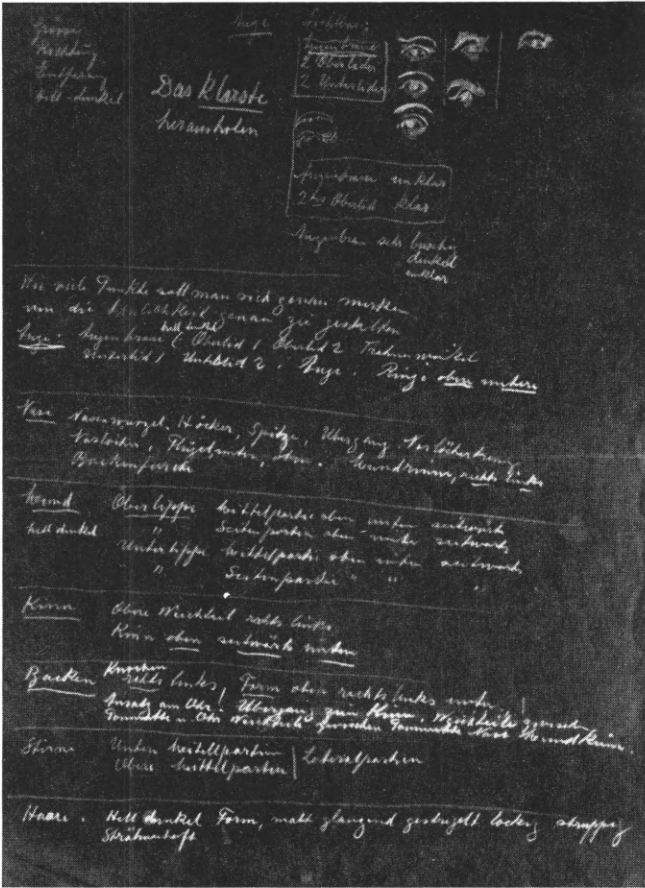 Grösse
Richtung
Entfernung
hell-dunkel
Das Klarste
herausholen
Auge
Augenbraue
2 Oberlider
2 Unterlider
Augenbraue unklar
2tes Oberlid klar
Augenbrau sehr buschig
dunkel
unklar
Wie viele Punkte soll man sich genau merken
um die Ähnlichkeit genau zu gestalten
hell dunkel
Auge: Augenbraue Oberlid 1 Oberlid 2 Tränenwinkel
Unterlid 1 Unterlid 2. Auge. Ringe oben untere
Nase Nasenwurzel, Höcker, Spitze, Übergang
Naslöcher, Flügel unten, oben. Mundrinne, rechts links
Backenfurche
Mund Oberlippe Mittelpartie oben unten seitwärts
hell dunkel " Seitenpartien oben unten seitwärts
Unterlippe Mittelpartie oben unten seitwärts
" Seitenpartie " " "
Kinn Obere Weichteil rechts links
Kinn oben seitwärts unten
Knochen
Backen rechts links | Form oben rechts links unten |
Ansatz am Ohr. Übergang zum Kinn. Weichteile zwischen
u. Ohr Weichteile zwischen Nase Mund Kinn.
Stirne Unten Mittelpartien | Lateralpartien
Obere Mittelpartien
Haare. Hell dunkel Form, matt glänzend gestriegelt lockig struppig
Strähnenhaft